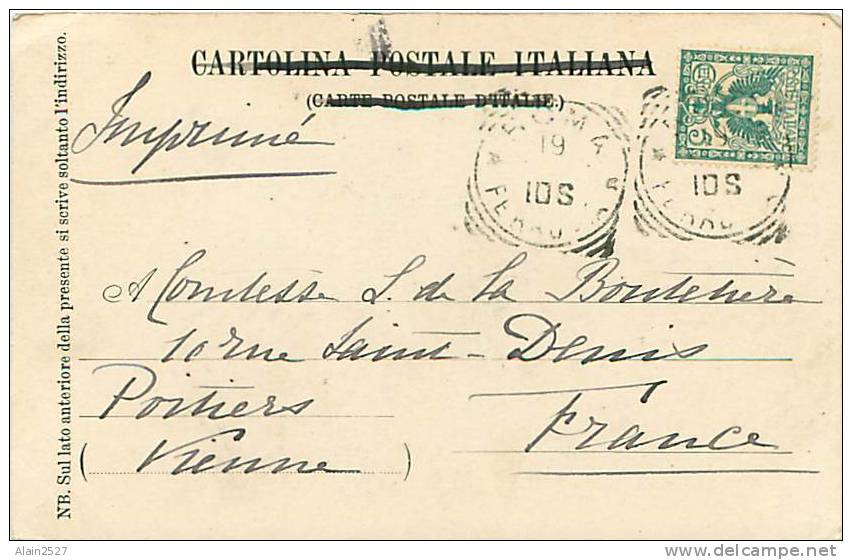 CARTOLINA POSTALE ITALIANA
(CARTE POSTALE D'ITALIE.)
Imprimé
ROMA
19
10S
FERRO
10S
FERRO
POSTE ITALIANE
5
A Comtesse S. de la Boutetière
10 rue Saint-Denis
Poitiers
France
(Vienne)
NB. Sul lato anteriore della presente si scrive soltanto l'indirizzo.
Alain2527
delcampe.net